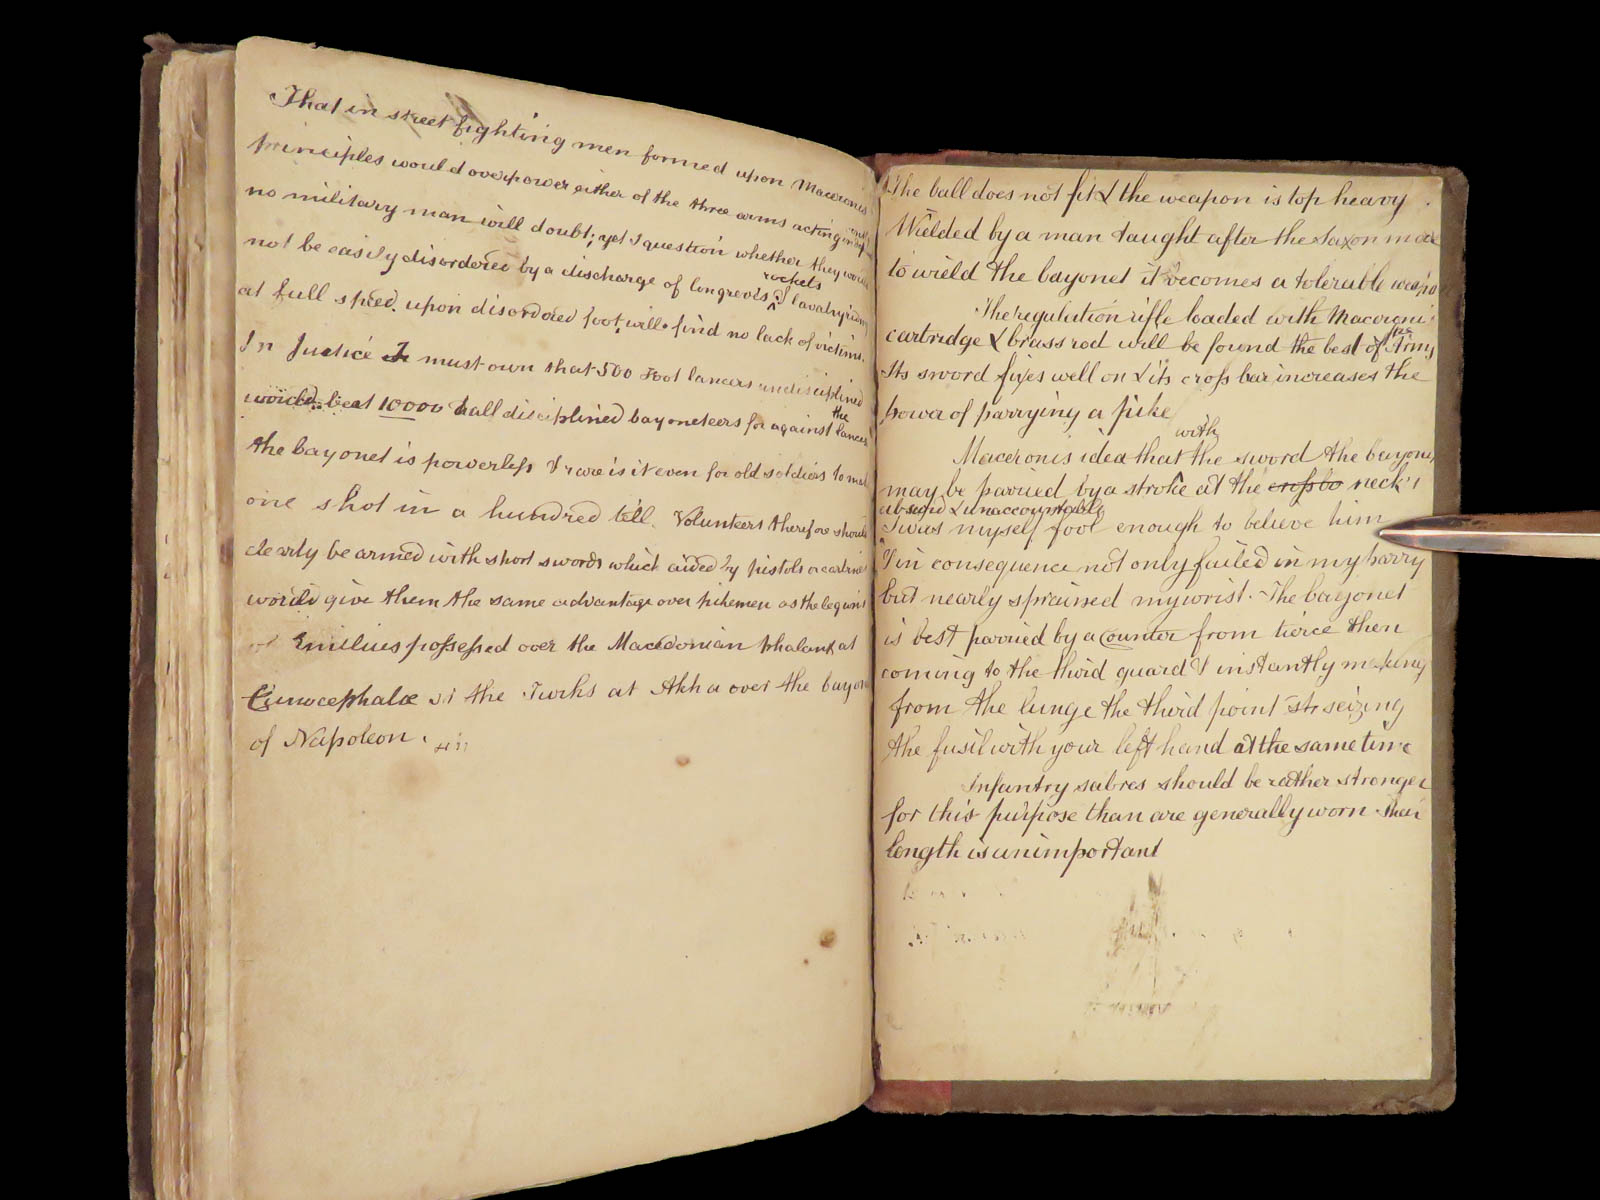 That in street fighting men formed upon Maceronis
principles would overpower either of the three arms acting
no military man will doubt; yet I question whether they would
not be easily disordered by a discharge of Congreves rockets & Cavalry riding
at full speed upon disordered foot will find no lack of victims.
In Justice I must own that 500 Foot lancers undisciplined
would beat 10000 half disciplined bayoneteers for against the lancers
the bayonet is powerless & rare is it even for old soldiers to make
one shot in a hundred tell. Volunteers therefore should
clearly be armed with short swords which aided by pistols or carbines
would give them the same advantage over pikemen as the legions
of Emilius possessed over the Macedonian phalanx at
Cunocephalæ or the Turks at Akka over the bayonets
of Napoleon.
The ball does not fit & the weapon is top heavy
Wielded by a man taught after the Saxon mode
to wield the bayonet it becomes a tolerable weapon
The regulation rifle loaded with Maceroni
cartridge & brass rod will be found the best of fire Arms
Its sword fixes well on & its cross bar increases the
power of parrying a pike
Maceronis idea that with the sword the bayonet
may be parried by a stroke at the cross ba neck is
absurd & unaccountable
I was myself fool enough to believe him
& in consequence not only failed in my parry
but nearly sprained my wrist. The bayonet
is best parried by a Counter from tierce then
coming to the third guard & instantly making
from the lunge the third point seizing
the fusil with your left hand at the same time
Infantry sabres should be rather stronger
for this purpose than are generally worn their
length is unimportant